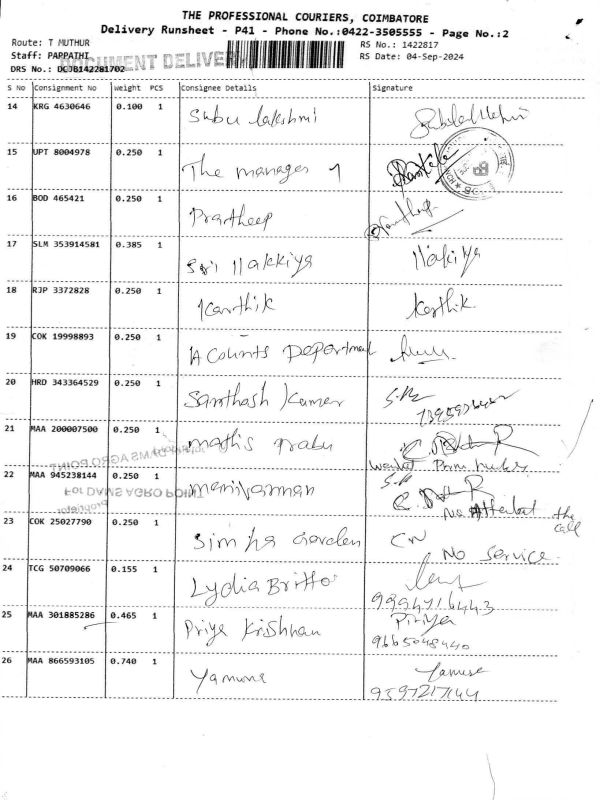 THE PROFESSIONAL COURIERS, COIMBATORE
Delivery Runsheet - P41 - Phone No.:0422-3505555 - Page No.:2
Route: T MUTHUR
RS No.: 1422817
Staff: PAPPATHI
RS Date: 04-Sep-2024
DOCUMENT DELIVERY
DRS No.: DCJB142281702
S No Consignment No Weight PCS Consignee Details Signature
14 KRG 4630646 0.100 1 Subu lakshmi
15 UPT 8004978 0.250 1 The manager
16 BOD 465421 0.250 1 Pradheep
17 SLM 353914581 0.385 1 Sri Ilakkiya Ilakiya
18 RJP 3372828 0.250 1 Karthik Karthik
19 COK 19998893 0.250 1 Acounts Department
20 HRD 343364529 0.250 1 Santhosh Kumar
21 MAA 200007500 0.250 1 mathis prabu
For DAMS AGRO POINT
22 MAA 945238144 0.250 1 manivannan
For DAMS AGRO POINT
No the call
23 COK 25027790 0.250 1 Simha Garden CN No Service
24 TCG 50709066 0.155 1 Lydia Britto
9994716443
25 MAA 301885286 0.465 1 Priya Krishnan Piriya
9665048440
26 MAA 866593105 0.740 1 Yamuna
9597217144